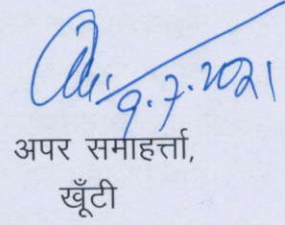 9.7.2021
अपर समाहर्त्ता,
खूँटी